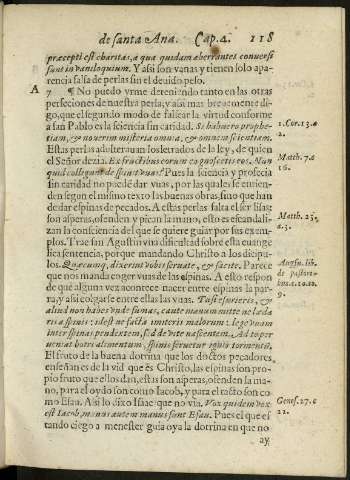 de santa Ana. Cap. 2. 118
præcepti est charitas, a qua quidam aberrantes conuersi
sunt in vaniloquium. Y assi son vanas y tienen solo apa-
rencia falsa de perlas sin el deuido peso.
A 7 ¶ No puedo yrme deteniendo tanto en las otras
perfeciones de nuestra perla, y assi mas breuemente di-
go, que el segundo modo de faltar la virtud conforme
a san Pablo es la sciencia sin caridad. Si habuero prophe-
tiam, & nouerim misteria omnia, & omnem scientiam.
Estas perlas adulterauan los letrados de la ley, de quien
el Señor dezia. Ex fructibus eorum cognoscetis eos. Nun
quid colligunt de spinis vuas? Pues la sciencia y profecia
sin caridad no puede dar vuas, por las quales se entien-
den segun el mismo texto las buenas obras, sino que han
de dar espinas de pecados. A estas perlas falta el ser lisas;
son asperas, ofenden y pican la mano, esto es escandali-
zan la consciencia del que se quiere guiar por sus exem-
plos. Trae san Agustin vna dificultad sobre esta euange
lica sentencia, porque mandando Christo a los dicipu-
los. Quæcunq; dixerint vobis seruate, & facite. Parece
que nos manda coger vuas de las espinas. A esto respon
de que alguna vez acontece nacer entre espinas la par-
ra, y assi colgarse entre ellas las vuas.
aliud non habes vnde sumas, caute manum mitte ne læda
ris a spinis: idest ne facta imiteris malorum: lege vuam
inter spinas pendentem, sed de vite nascentem. Ad te per
ueniat botri alimentum, spinis seruetur ignis tormentū.
El fruto de la buena dotrina que los doctos pecadores,
enseñan es de la vid que es Christo, las espinas son pro-
pio fruto que ellos dan, estas son asperas, ofenden la ma-
no, para el oydo son como Iacob, y para el tacto son co-
mo Esau. Assi lo dixo Isaac que no via. Vox quidem vox
est Iacob, manus autem manus sunt Esau. Pues el que es
tando ciego a menester guia oya la dotrina en que no
ay
1. Cor. 13. a
2.
Matth. 7. a
16.
Matth. 23.
a. 3.
August. lib.
de pastori-
bus. c. 10. to.
9.
Genes. 27. c
22.